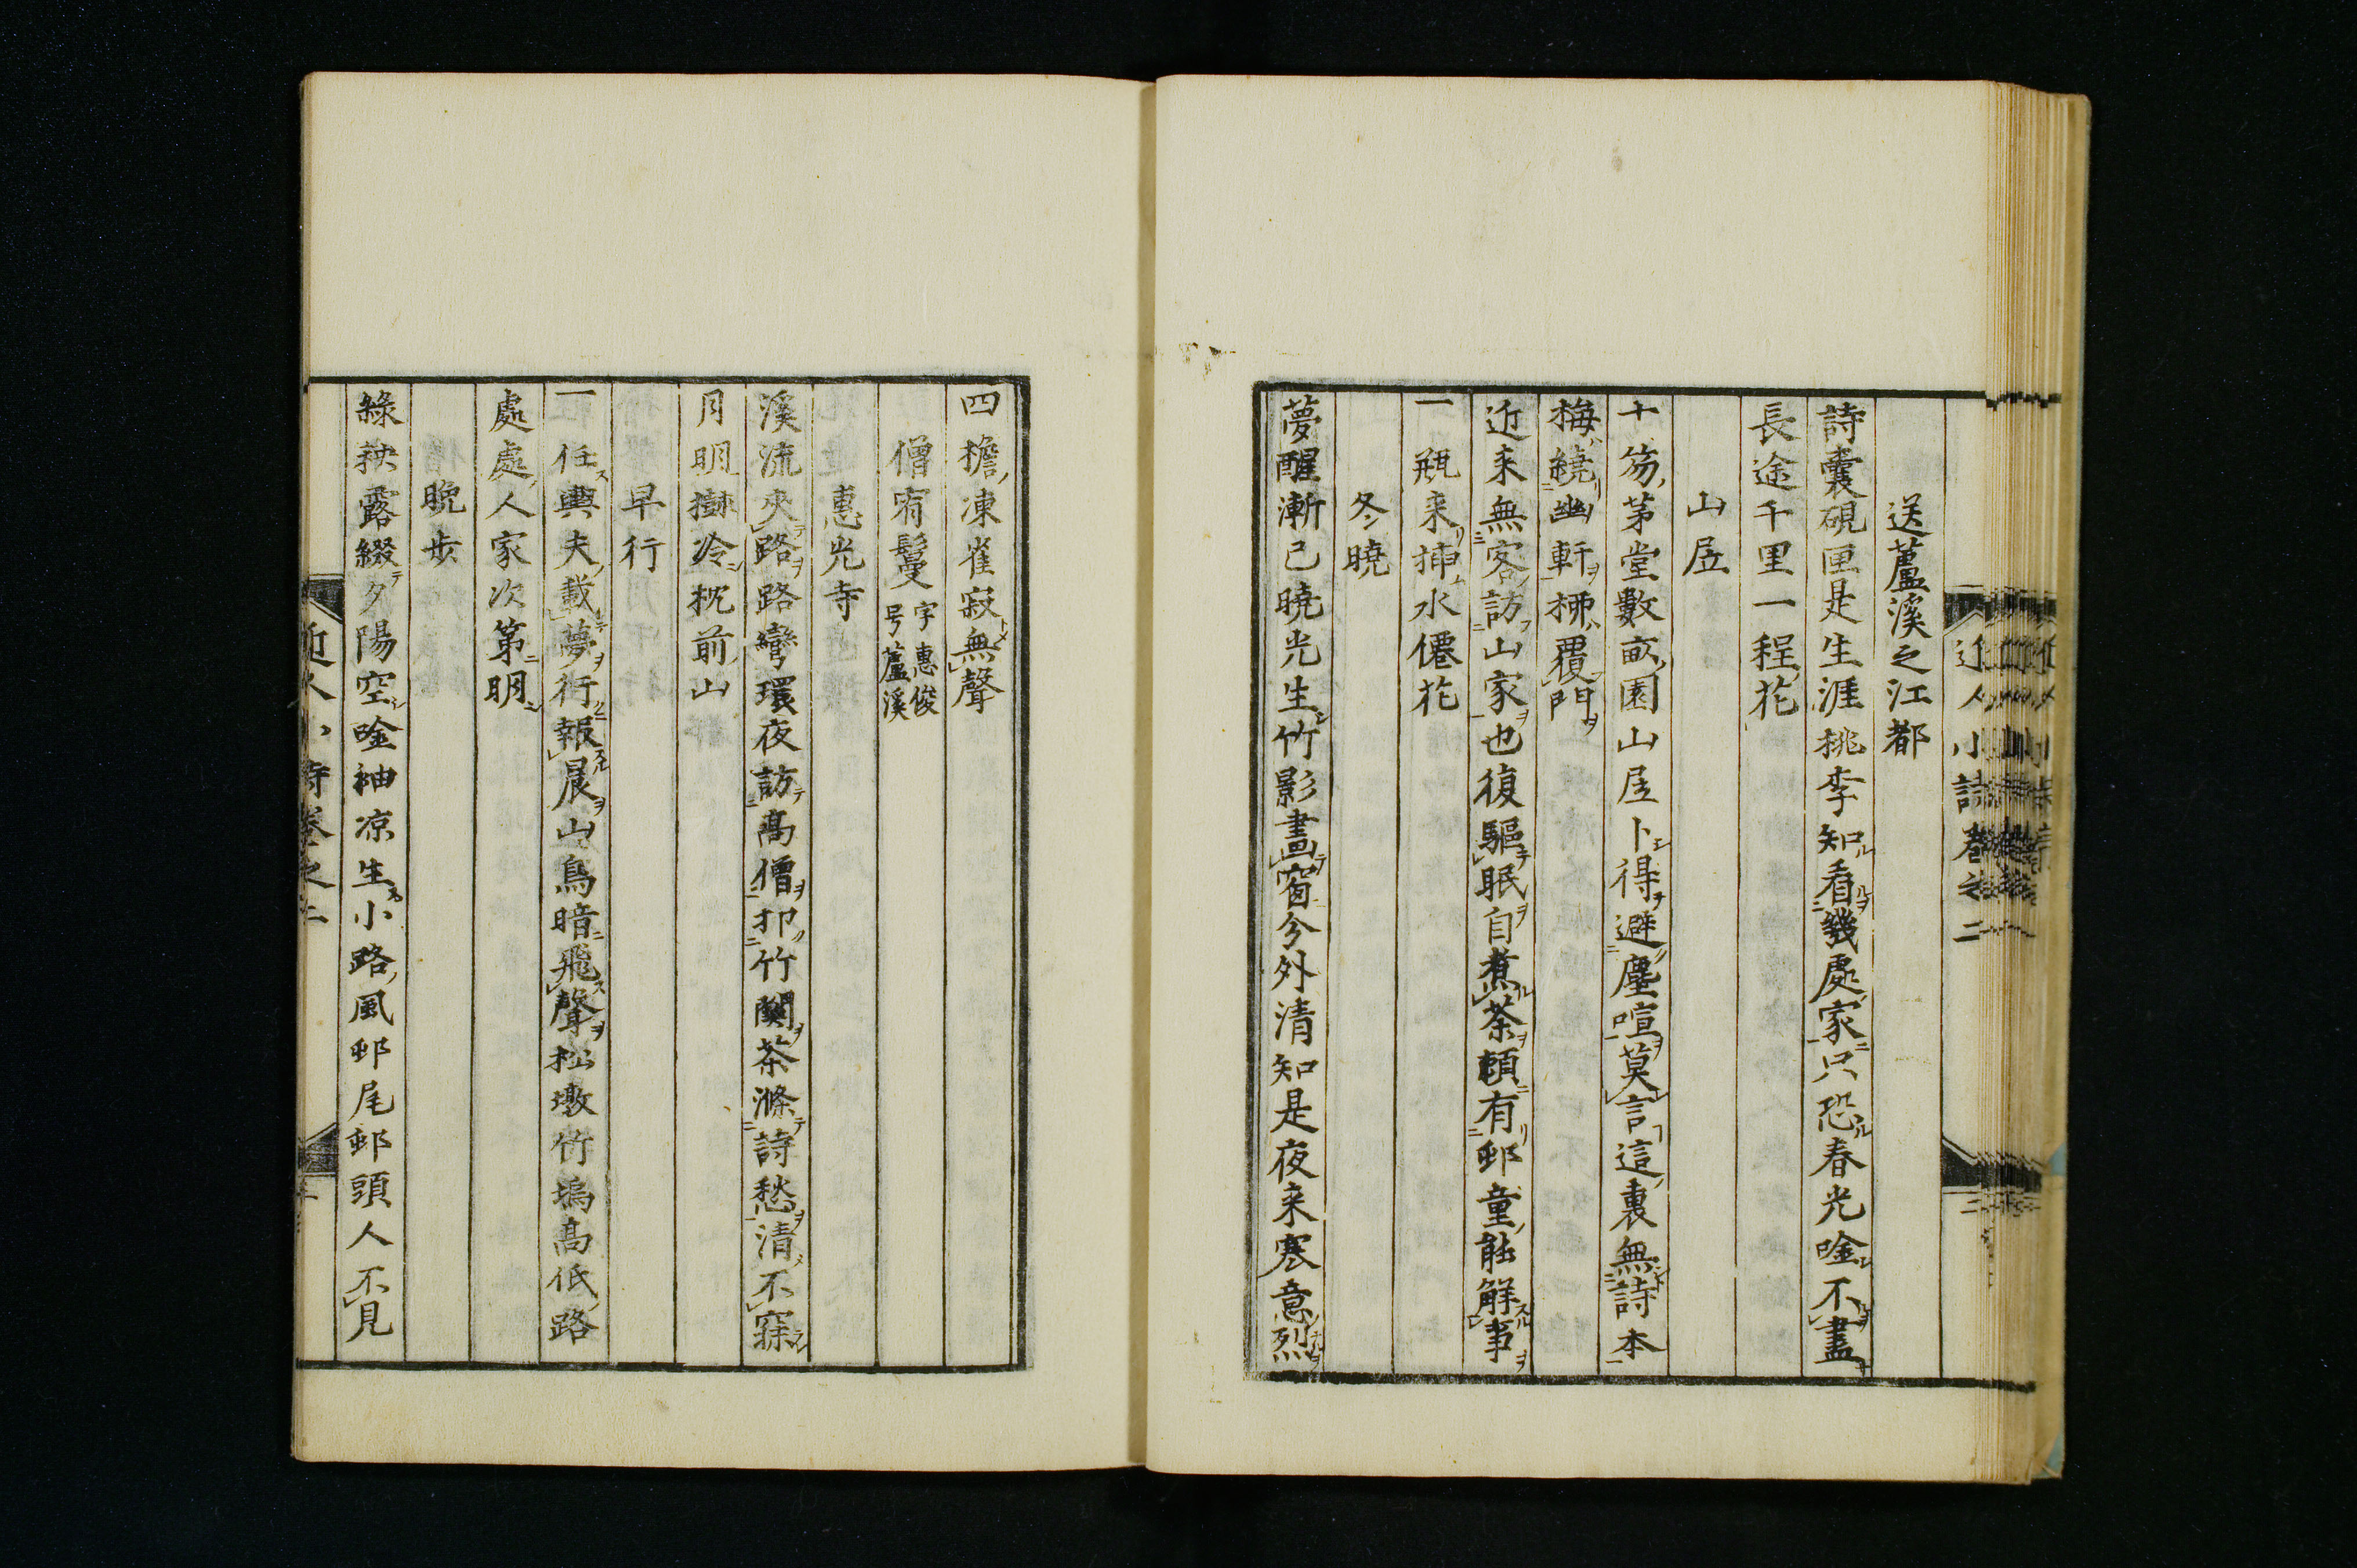 近人小詩卷之二
送蘆溪之江都
詩囊硯匣是生涯挑李知看幾處家只恐春光唫不盡
長途千里一程花
山居
十笏茅堂數畝園山居卜得避塵喧莫言這裏無詩本
梅繞幽軒柳覆門
近来無客訪山家也復驅眠自煮茶頼有邨童能解事
一瓶来揷水僊花
冬曉
夢醒漸已曉光生竹影畫窗分外清知是夜来寒意烈
四檐凍雀寂無聲
僧宥鬘 字惠俊
号蘆溪
惠光寺
溪流夾路路彎環夜訪高僧叩竹關茶滌詩愁清不寐
月明樹冷枕前山
早行
一任輿夫載夢行報晨山鳥暗飛聲松墩竹塢高低路
處處人家次第明
晩歩
緑秧露綴夕陽空唫袖凉生小路風邨尾邨頭人不見
近人小詩卷之二